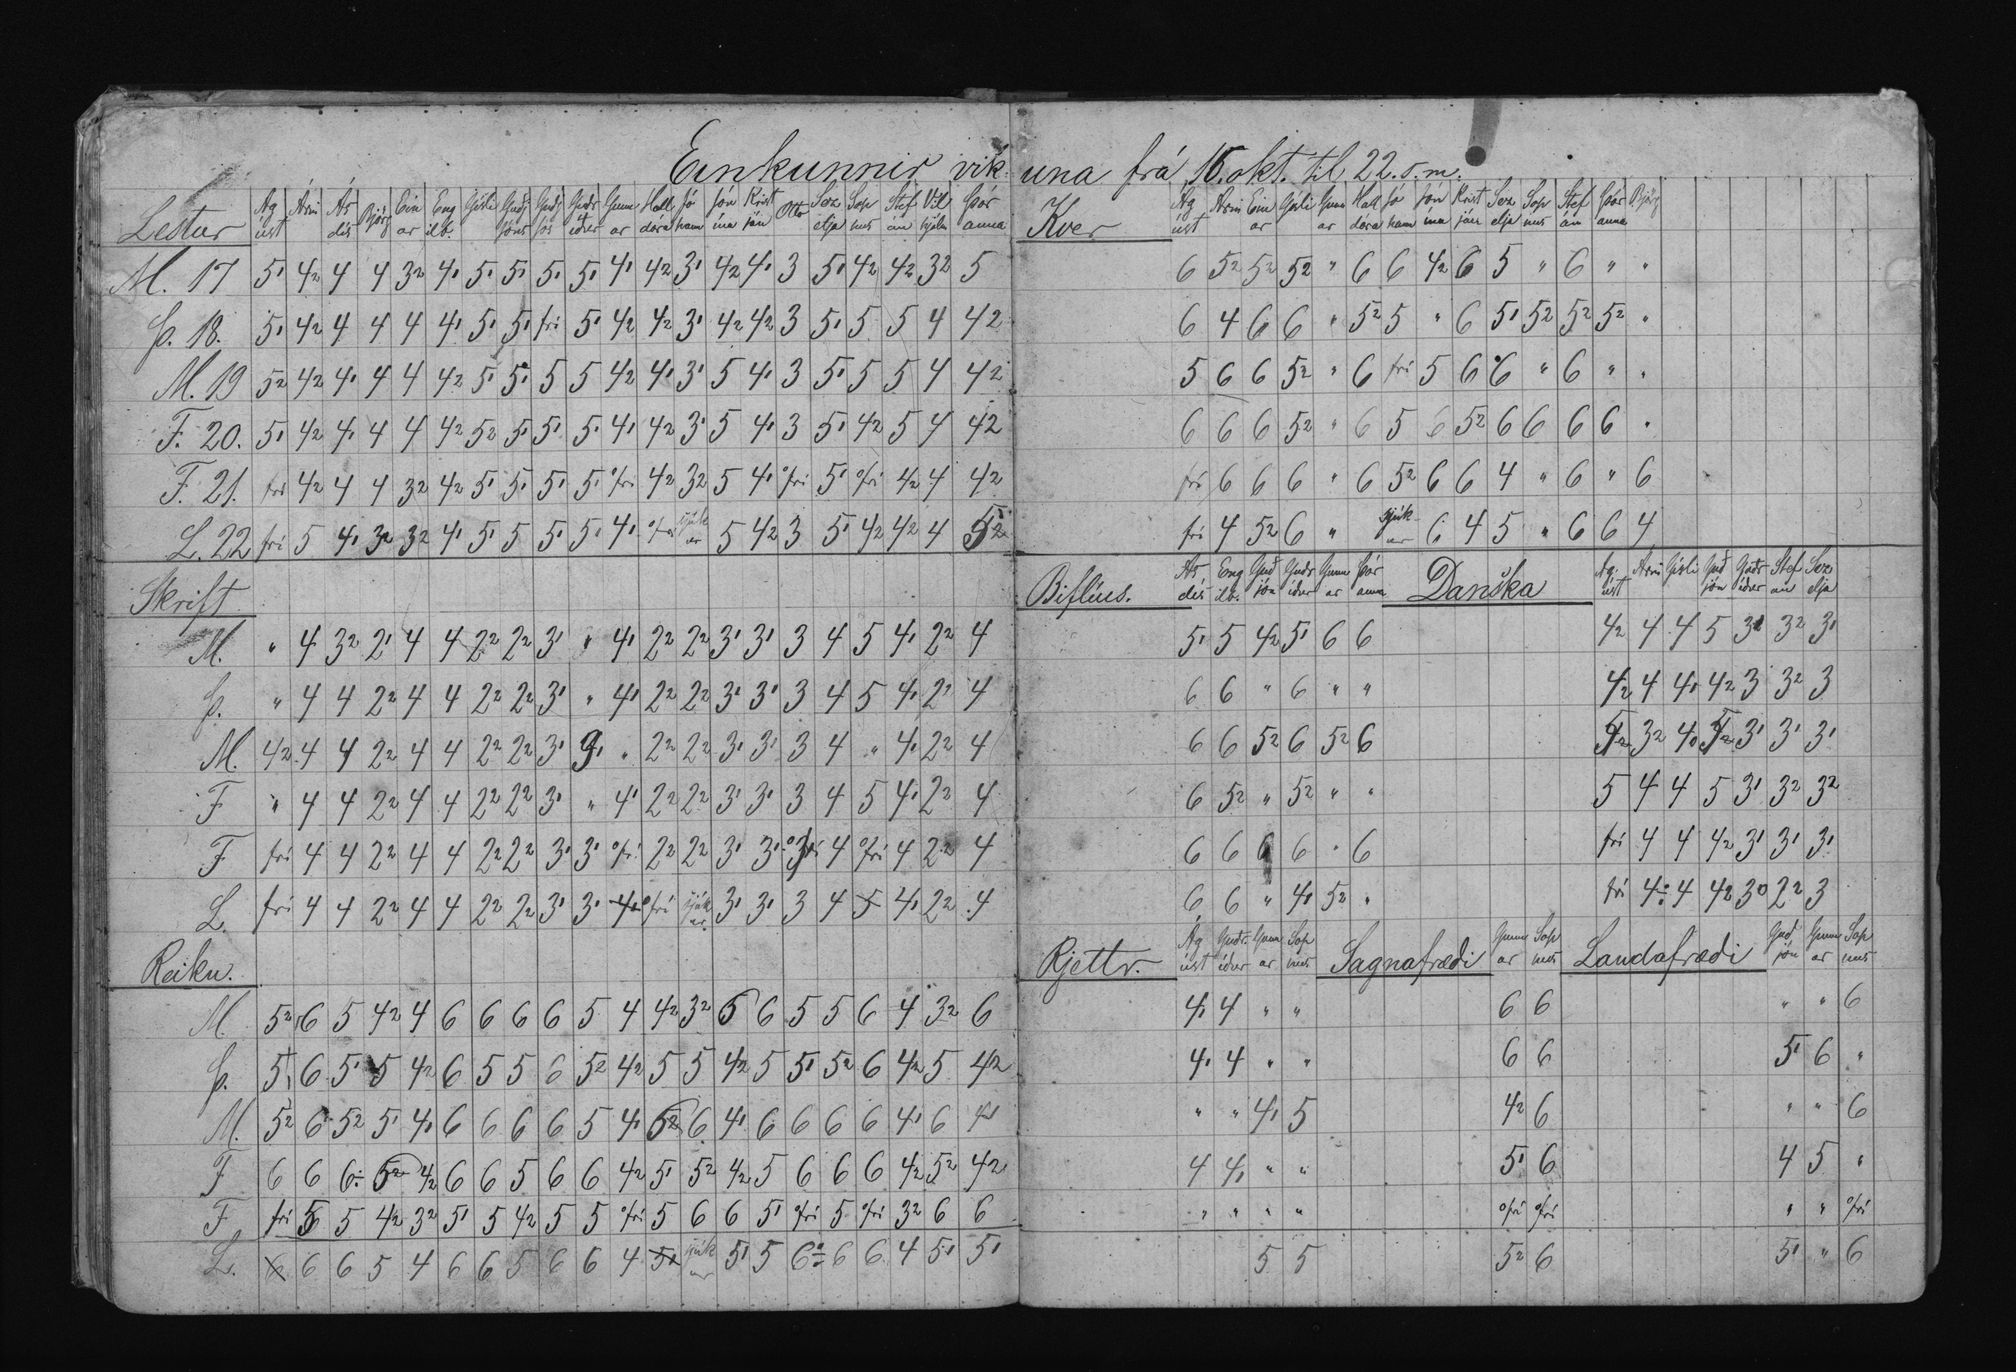 Einkunnir vikuna frá 16. okt. til 22. s.m.
Lestur Ágúst Árni Ásdís Björg Einar Engilb. Gísli Guðjóns Guðjós Guðríður Gunnar Halldóra Jóhann Jónína Kristján Otto Sezelja Sopnus Stefán Vilhjálm Þóranna
M. 17 5¹ 4² 4 4 3² 4¹ 5¹ 5¹ 5¹ 5¹ 4¹ 4² 3¹ 4² 4¹ 3 5¹ 4² 4² 3² 5
Þ. 18. 5¹ 4² 4 4 4 4¹ 5¹ 5¹ fri 5¹ 4² 4² 3¹ 4² 4² 3 5¹ 5 5 4 4²
M. 19 5² 4² 4¹ 4 4 4² 5¹ 5¹ 5 5 4² 4¹ 3¹ 5 4¹ 3 5¹ 5 5 4 4²
F. 20. 5¹ 4² 4¹ 4 4 4² 5² 5¹ 5¹ 5¹ 4¹ 4² 3¹ 5 4¹ 3 5¹ 4² 5 4 4²
F. 21. fri 4² 4 4 3² 4² 5¹ 5¹ 5¹ 5¹ fri 4² 3² 5 4¹ fri 5¹ fri 4² 4 4²
L. 22 fri 5 4¹ 3² 3² 4¹ 5¹ 5 5¹ 5¹ 4¹ fri sjúkur 5 4² 3 5¹ 4² 4² 4 5²
Skrift
M. " 4 3² 2¹ 4 4 2² 2² 3¹ " 4¹ 2² 2² 3¹ 3¹ 3 4 5 4¹ 2² 4
Þ. " 4 4 2² 4 4 2² 2² 3¹ " 4¹ 2² 2² 3¹ 3¹ 3 4 5 4¹ 2² 4
M. 4² 4 4 2² 4 4 2² 2² 3¹ 3¹ " 2² 2² 3¹ 3¹ 3 4 " 4¹ 2² 4
F " 4 4 2² 4 4 2² 2² 3¹ " 4¹ 2² 2² 3¹ 3¹ 3 4 5 4¹ 2² 4
F fri 4 4 2² 4 4 2² 2² 3¹ 3¹ fri 2² 2² 3¹ 3¹ fri 4 fri 4 2² 4
L. fri 4 4 2² 4 4 2² 2² 3¹ 3¹ 4 fri sjúkur 3¹ 3¹ 3 4 5 4¹ 2² 4
Reikn.
M 5² 6 5 4² 4 6 6 6 6 5 4 4² 3² 5 6 5 5 6 4 3² 6
Þ. 5¹ 6 5¹ 5 4² 6 5 5 6 5² 4² 5 5 4² 5 5¹ 5² 6 4² 5 4²
M. 5² 6 5² 5¹ 4¹ 6 6 6 6 5 4¹ 5² 6 4¹ 6 6 6 6 4¹ 6
F 6 6 6 5² 4² 6 6 5 6 6 4² 5¹ 5² 4² 5 6 6 6 4² 5² 4²
F fri 5 5 4² 3² 5¹ 5 4² 5 5 fri 5 6 6 5¹ fri 5 fri 3² 6 6
L. 6 6 6 5 4 6 6 5 6 6 4 5¹ sjúkur 5¹ 5 6 6 6 4 5¹ 5¹
Kver Ágúst Árni Einar Gísli Gunnar Halldóra Jóhann Jónína Kristján Sezelja Sopnus Stefán Þóranna Björg
6 5² 5² 5² " 6 6 4² 6 5 " 6 " "
6 4 6 6 " 5² 5 " 6 5¹ 5² 5² 5² "
5 6 6 5² " 6 fri 5 6 6 " 6 " "
6 6 6 5² " 6 5 6 5² 6 6 6 6 "
fri 6 6 6 " 6 5² 6 6 4 " 6 " 6
fri 4 5² 6 " sjúkur 6 4 5 " 6 6 4
Biflíus. Ásdís Engilb. Guðjón Guðríður Gunnar Þóranna Danska Ágúst Árni Gísli Guðjón Guðríður Stefán Sezelja
5¹ 5 4² 5¹ 6 6 4² 4 4 5 3¹ 3² 3¹
6 6 " 6 " " 4² 4 4¹ 4² 3 3² 3
6 6 5² 6 5² 6 3² 4¹ 3¹ 3¹ 3¹
6 5² " 5² " " 5 4 4 5 3¹ 3² 3²
6 6 6 6 " 6 fri 4 4 4² 3¹ 3¹ 3¹
6 6 " 4¹ 5² " fri 4 4 4² 3 2² 3
Rjettr. Ágúst Guðríður Gunnar Sopnus Sagnafræði Gunnar Sopnus Landafræði Guðjón Gunnar Sopnus
4¹ 4 " " 6 6 " " 6
4¹ 4 " " 6 6 5¹ 6 "
" " 4¹ 5 4² 6 " " 6
4 4¹ " " 5¹ 6 4 5 "
" " " " fri fri " " fri
5 5 5² 6 5¹ " 6